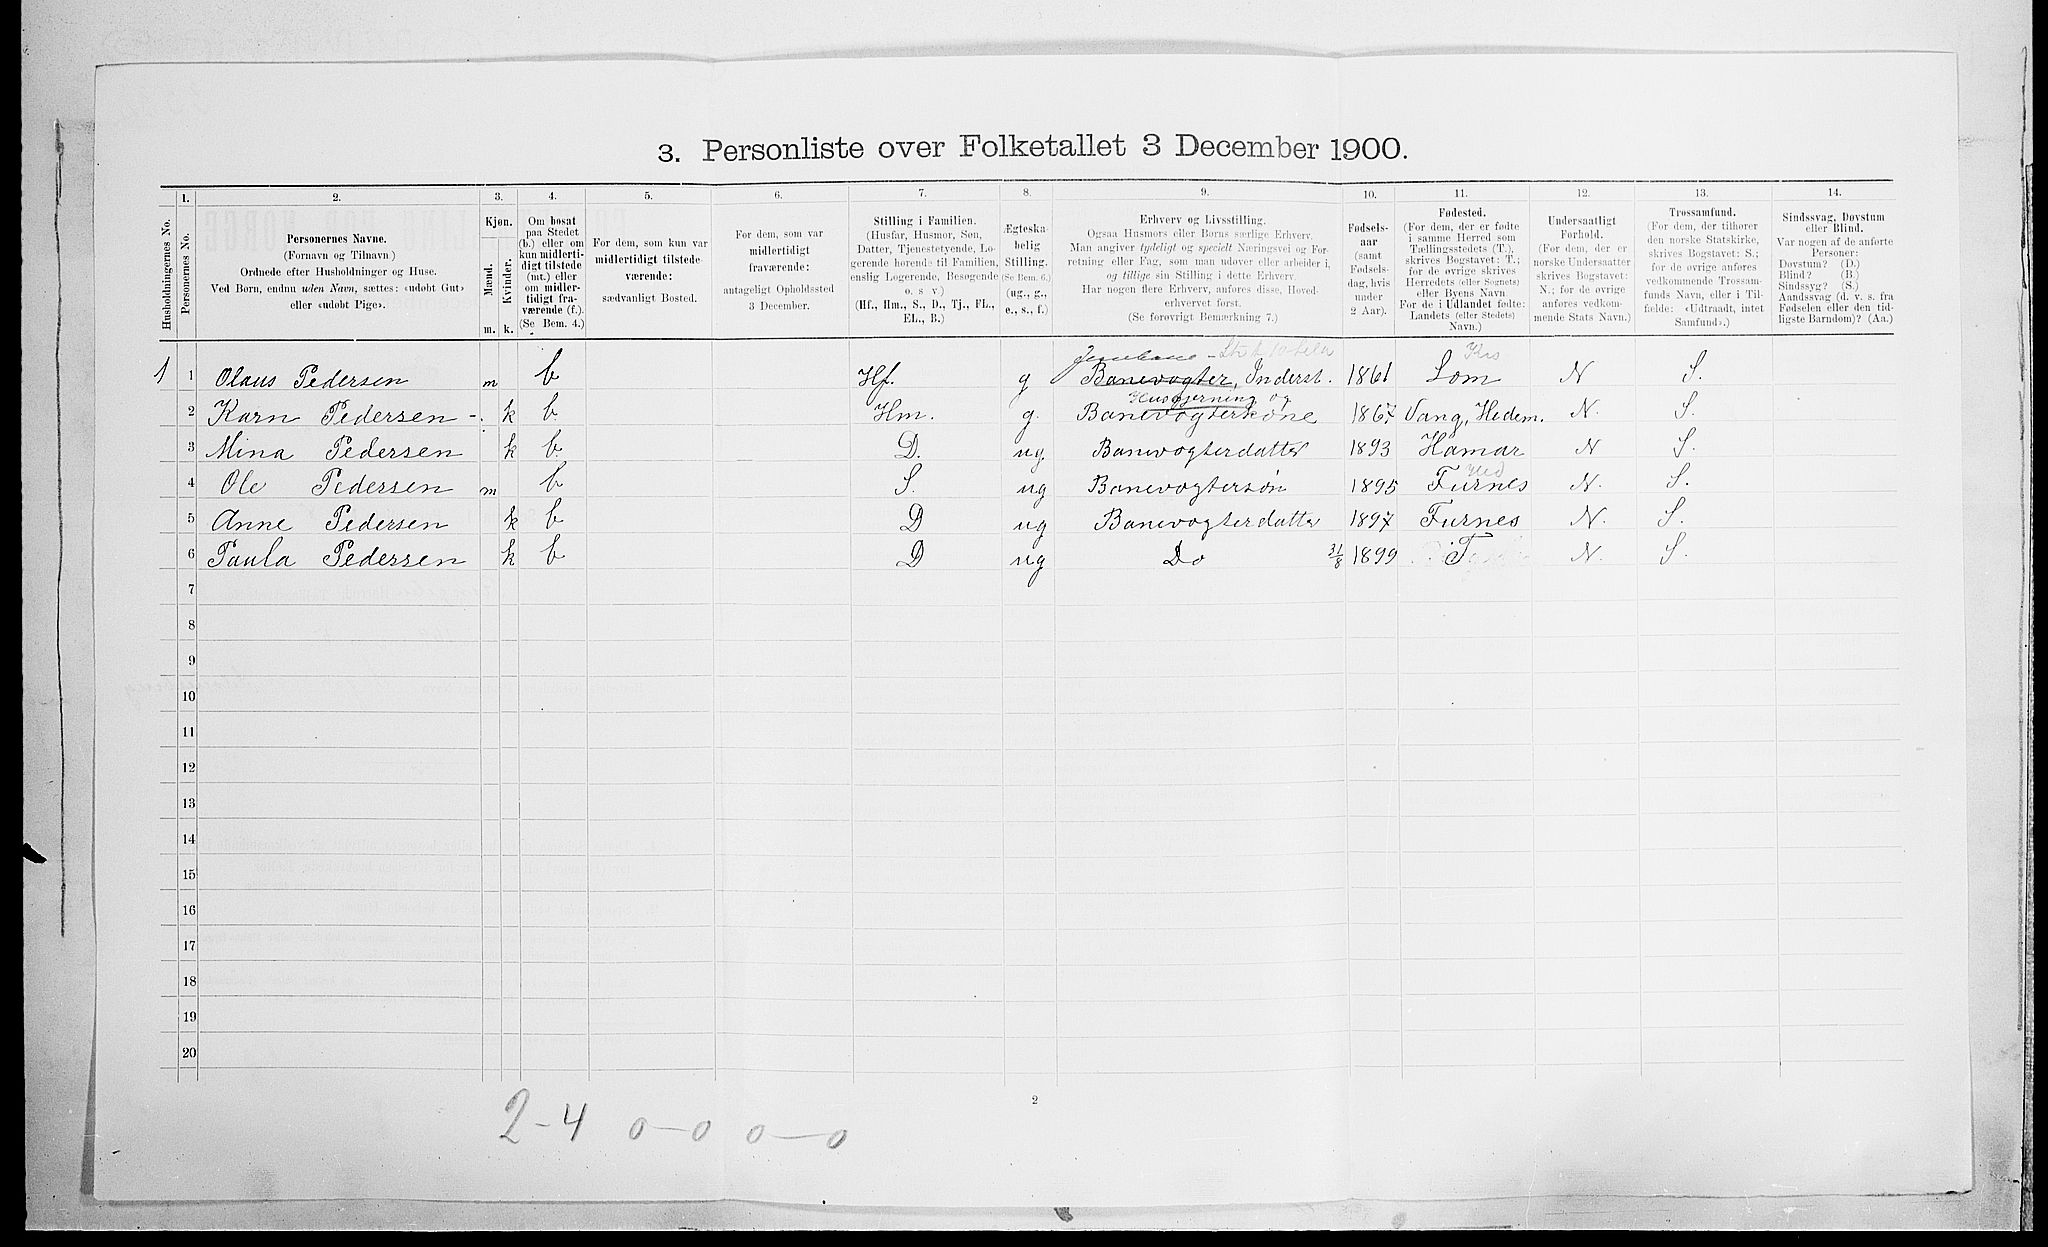 3. Personliste over Folketallet 3 December 1900.
1. 2. 3. 4. 5. 6. 7. 8. 9. 10. 11. 12. 13. 14.
Husholdningernes No.
Personernes No.
Personernes Navne.
(Fornavn og Tilnavn.)
Ordnede efter Husholdninger og Huse.
Ved Børn, endnu uden Navn, sættes: «udøbt Gut»
eller «udøbt Pige».
Kjøn.
Mænd.
Kvinder.
m. k.
Om bosat
paa Stedet
(b.) eller om
kun midlerti-
digt tilstede
(mt.) eller
om midler-
tidigt fra-
værende (f.).
(Se Bem. 4.)
For dem, som kun var
midlertidigt tilstede-
værende:
sædvanligt Bosted.
For dem, som var
midlertidigt
fraværende:
antageligt Opholdssted
3 December.
Stilling i Familien.
(Husfar, Husmor, Søn,
Datter, Tjenestetyende, Lo-
gerende hørende til Familien,
enslig Logerende, Besøgende
o. s. v.)
(Hf., Hm., S., D., Tj., FL.,
EL., B.)
Ægteska-
belig
Stilling.
(Se Bem. 6.)
(ug., g.,
e., s., f.)
Erhverv og Livsstilling.
Ogsaa Husmors eller Børns særlige Erhverv.
Man angiver tydeligt og specielt Næringsvei og For-
retning eller Fag, som man udøver eller arbeider i,
og tillige sin Stilling i dette Erhverv.
Har nogen flere Erhverv, anføres disse, Hoved-
erhvervet først.
(Se forøvrigt Bemærkning 7.)
Fødsels-
aar
(samt
Fødsels-
dag, hvis
under
2 Aar).
Fødested.
(For dem, der er fødte
i samme Herred som
Tællingsstedets (T.),
skrives Bogstavet: T.;
for de øvrige skrives
Herredets (eller Sognets)
eller Byens Navn
For de i Udlandet fødte:
Landets (eller Stedets)
Navn.)
Undersaatligt
Forhold.
(For dem, der er
norske Undersaatter
skrives Bogstavet:
N.; for de øvrige
anføres vedkom-
mende Stats Navn.)
Trossamfund.
(For dem, der tilhører
den norske Statskirke,
skrives Bogstavet: S.;
for de øvrige anføres
vedkommende Trossam-
funds Navn, eller i Til-
fælde: «Udtraadt, intet
Samfund».)
Sindssvag, Døvstum
eller Blind.
Var nogen af de anførte
Personer:
Døvstum? (D.)
Blind? (B.)
Sindssyg? (S.)
Aandssvag (d. v. s. fra
Fødselen eller den tid-
ligste Barndom)? (Aa.)
Jernbane - Krs
1 1 Olaus Pedersen m b Hf. g Banevogter, Inderst. 1861 Lom N S.
Husgjerning og
2 Karn Pedersen -. k b. Hm. g. Banevogterkone 1867 Vang, Hedem. N. S.
3 Mina Pedersen k b. D. ug. Banevogterdatter 1893 Hamar N S.
Hed
4 Ole Pedersen m b S. ug Banevogtersøn 1895 Furnes N. S.
5 Anne Pedersen k b D ug Banevogterdatter 1897 Furnes N. S.
6 Paula Pedersen k b D ug Do 31/8 1899 T N. S.
7
8
9
10
11
12
13
14
15
16
17
18
19
20
2
2-4 0-0 0-0